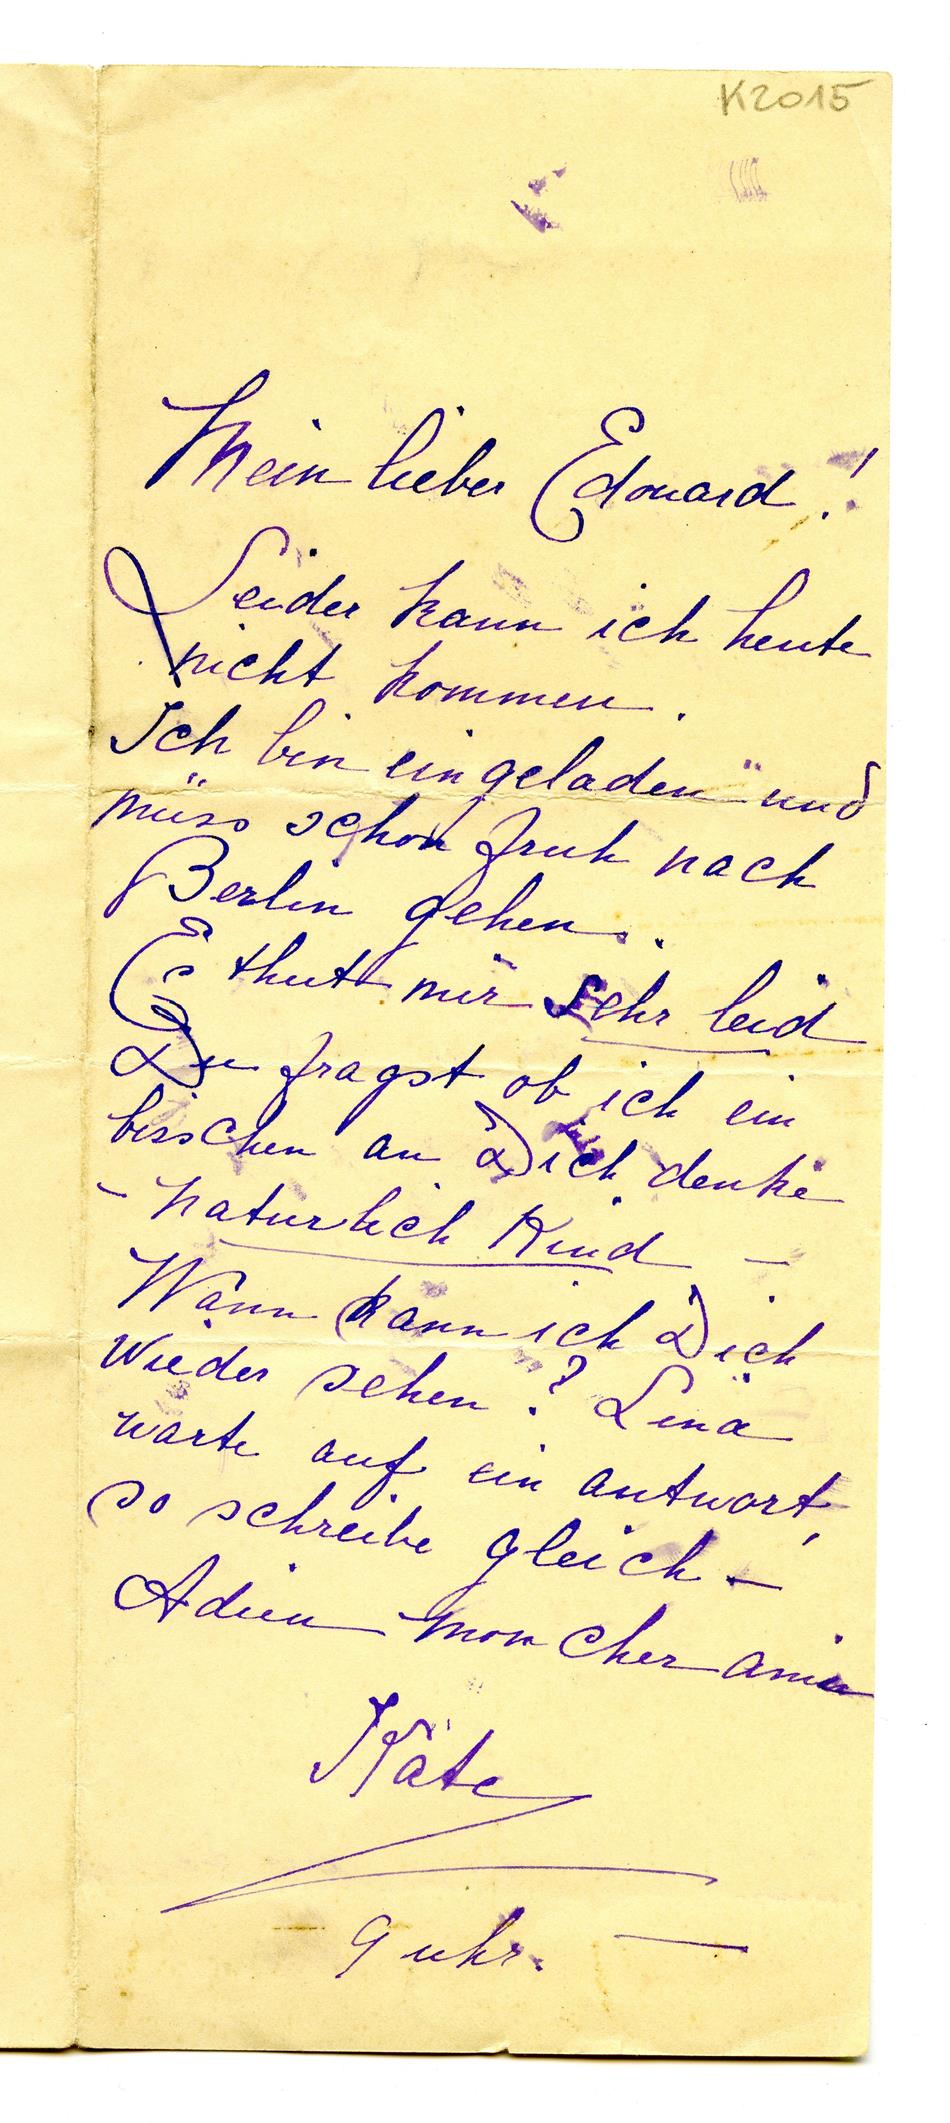 K2015
Mein lieber Edouard!
Leider kann ich heute
nicht kommen.
Ich bin eingeladen und
müss schon fruh nach
Berlin gehen.
Es thut mir sehr leid
Du fragst ob ich ein
bisschen an Dich denke
- naturlich Kind -
Wann kann ich Dich
wieder sehen? Lina
warte auf ein antwort,
so schreibe gleich -
Adieu mon cher ami
Käte
9 uhr. -